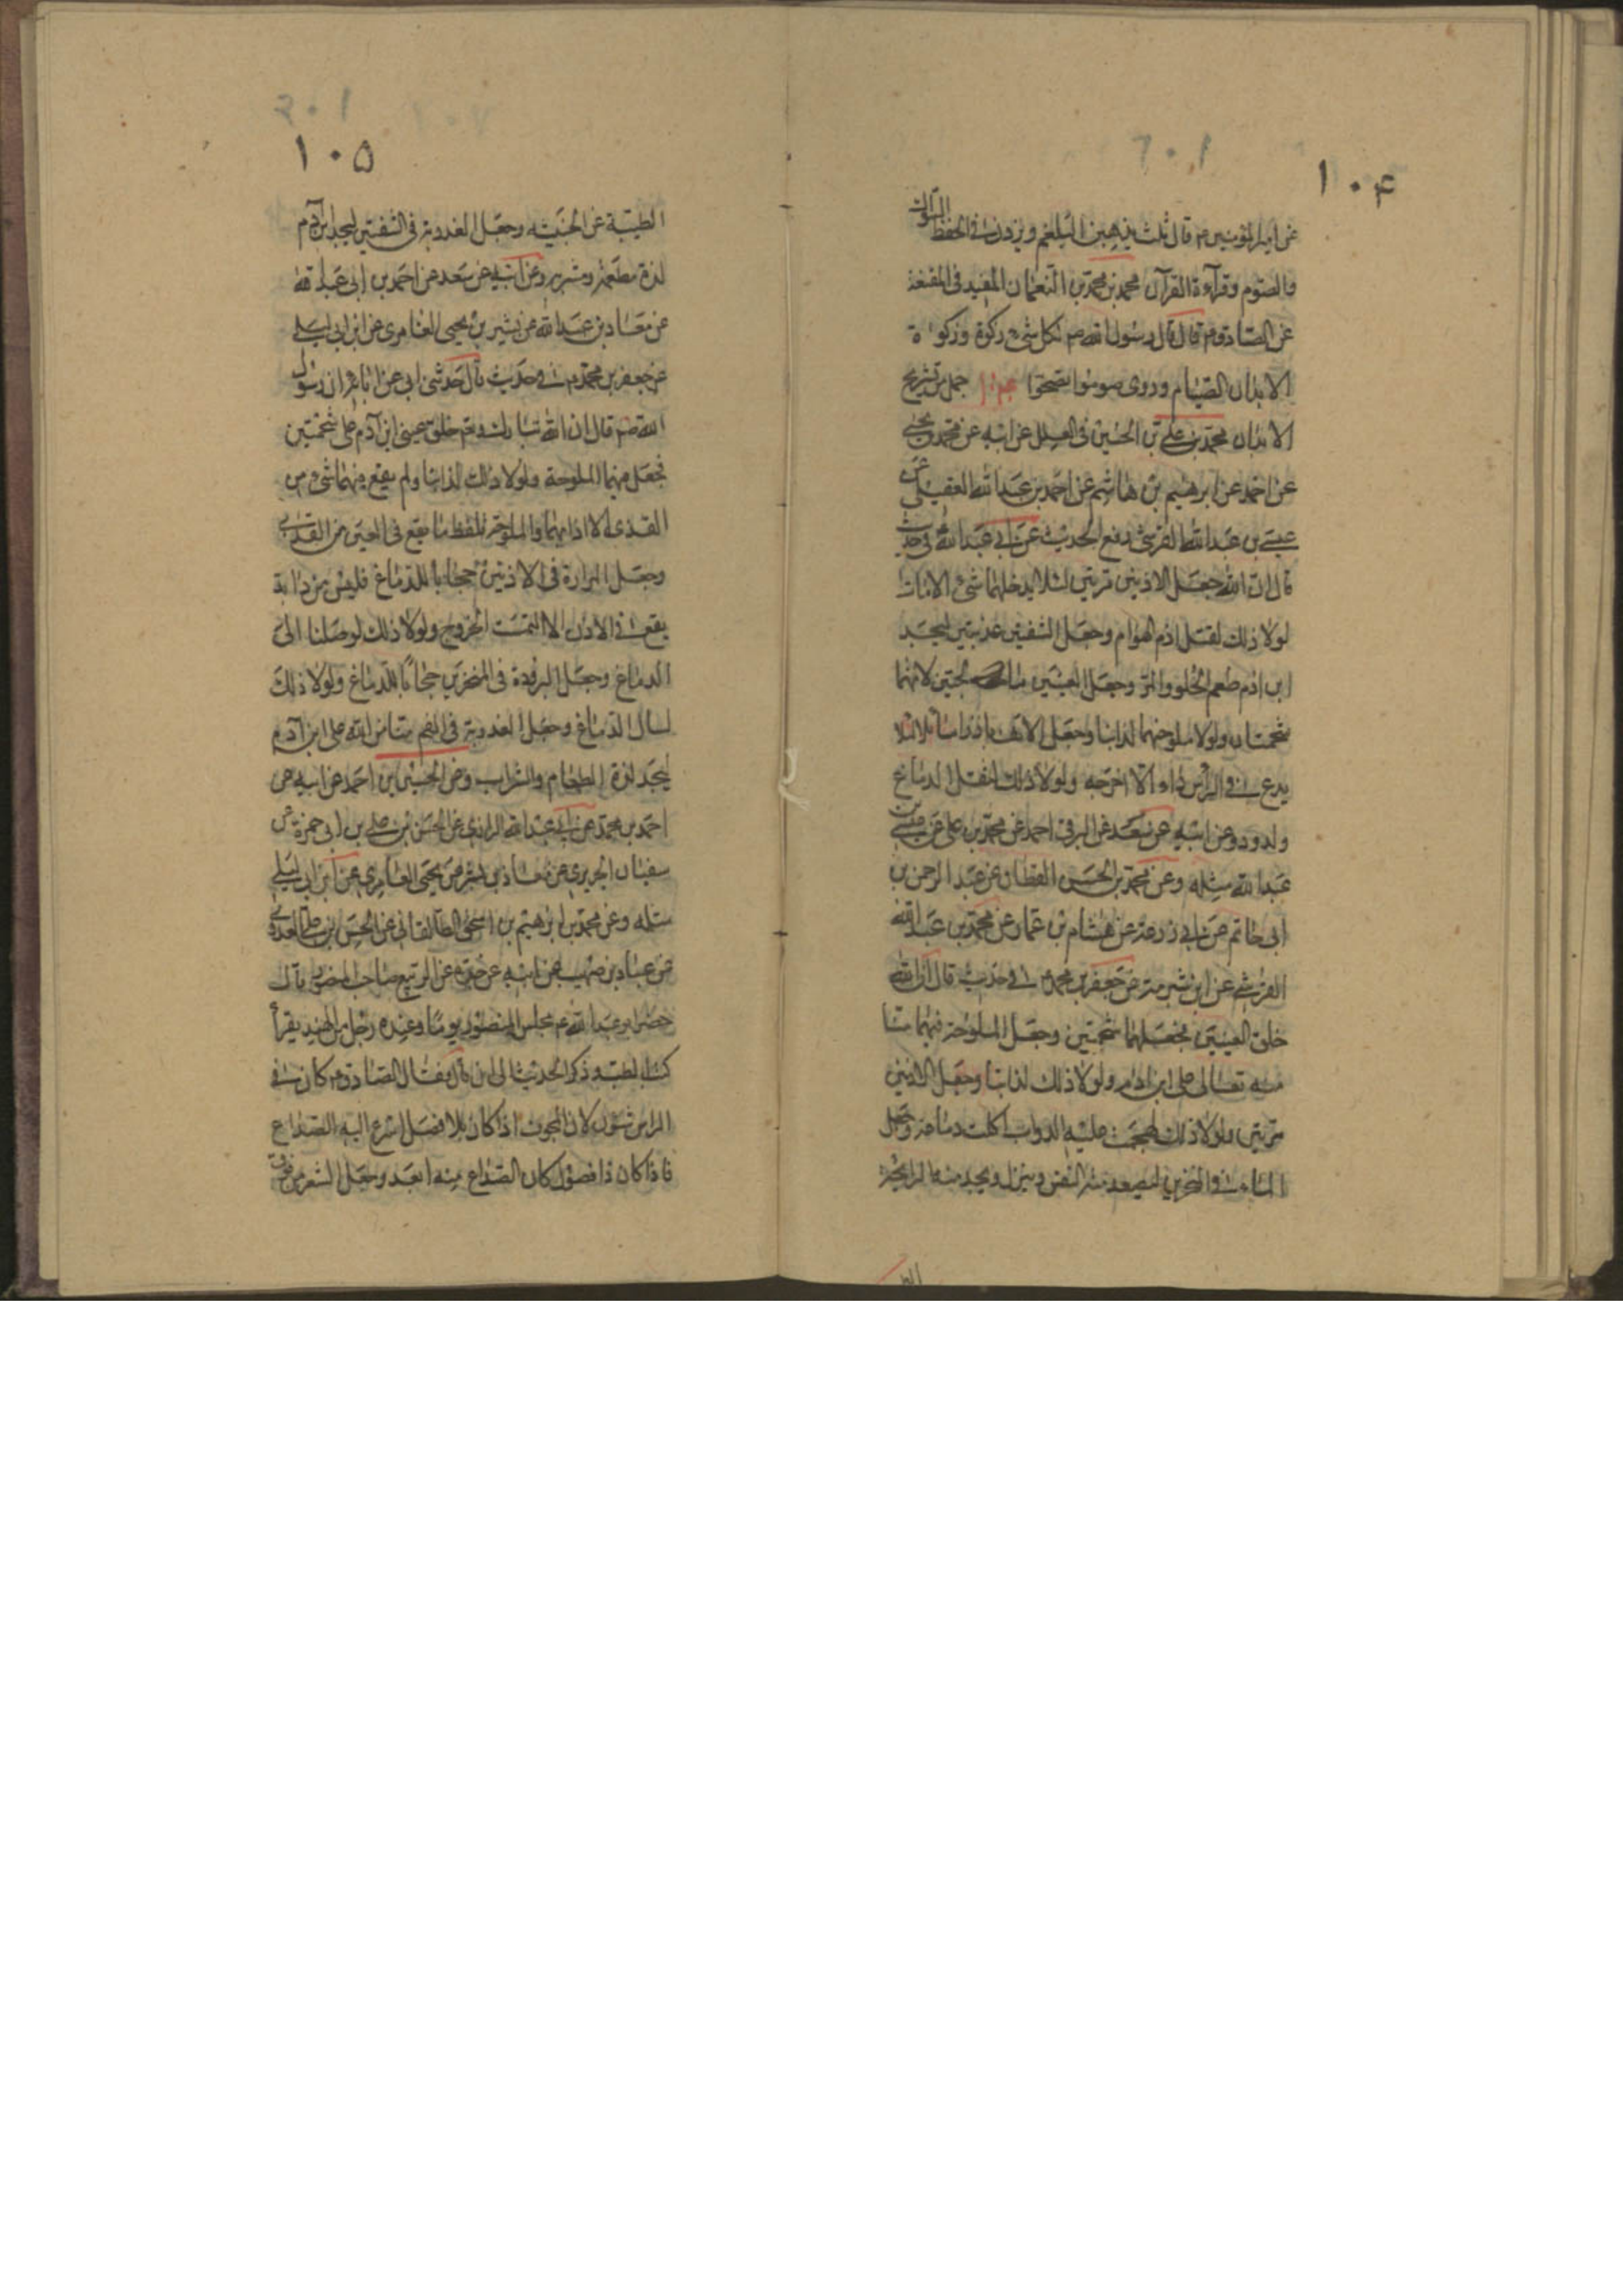 ١٠۴
عن امير المؤمنين ع قال ثلث يذهبن البلغم ويزدن في الحفظ السواك
والصوم وقرآءة القرآن محمد بن محمد بن النعمان المفيد في المقنعة
عن الصادق ع قال قال رسول الله ص لكل شئ زكوة وزكوة
الابدان الصيام وروى صوموا تصحوا جمل من تشريح
الابدان محمد بن علي بن الحسين في العلل عن ابيه عن محمد بن يحيى
عن احمد عن ابرهيم بن هاشم عن احمد بن عبد الله العقيلي عن
عيسى بن عبد الله القرشي رفع الحديث عن ابي عبد الله في حديث
قال ان الله جعل الاذنين مرتين لئلا يدخلهما شئ الا مات
لولا ذلك لقتل ادم الهوام وجعل الشفتين عذبتين ليجد
ابن ادم طعم الحلو والمر وجعل العينين مالحتين لانهما
شحمتان ولولا ملوحتهما لذابتا وجعل الانف باردا سائلا لئلا
يدع في الرأس داء الا اخرجه ولولا ذلك لثقل الدماغ
ودود وعن ابيه عن سعد عن البرقي احمد عن محمد بن علي عن عيسى بن
عبد الله مثله وعن محمد بن الحسن القطان عن عبد الرحمن بن
ابي حاتم عن ابي زرعة عن هشام بن عمار عن محمد بن عبد الله
القرشي عن ابن شبرمة عن جعفر بن محمد ع في حديث قال ان الله
خلق العينين فجعلهما شحمتين وجعل الملوحة فيهما منا
منه تعالى على ابن ادم ولولا ذلك لذابتا وجعل الاذنين
مرتين ولولا ذلك لهجمت عليه الدواب اكلت دماغه وجعل
الماء في المنخرين ليصعد منه النفس وينزل ويجد منه الرايحة
الط
١٠۵
الطيبة عن الخبيثه وجعل العذوبة في الشفتين ليجد ابن آدم
لذة مطعمه ومشربه وعن ابيه عن سعد عن احمد بن ابي عبد الله
عن معاذ بن عبد الله عن بشير بن يحيى العامري عن ابن ابي ليلى
عن جعفر بن محمد ع في حديث قال حدثني ابي عن ابائه ان رسول
الله ص قال ان الله تبارك وتع خلق عيني ابن آدم على شحمتين
فجعل فيهما الملوحة ولولا ذلك لذابتا ولم يقع فيهما شئ من
القذى الا اذابهما والملوحة تلفظ ما يقع في العين من القذى
وجعل المرارة في الاذنين حجابا للدماغ فليس من دابة
يقع في الاذن الا التمست الخروج ولولا ذلك لوصلنا الى
الدماغ وجعل البرودة في المنخرين حجابا للدماغ ولولا ذلك
لسال الدماغ وجعل العذوبة في الفم منا من الله على ابن آدم
ليجد لذة الطعام والشراب وعن الحسين بن احمد عن ابيه عن
احمد بن محمد عن ابي عبد الله الرازي عن الحسن بن علي بن ابي حمزة عن
سفيان الحريري عن معاذ بن بشر عن يحيى العامري عن ابن ابي ليلى
مثله وعن محمد بن ابرهيم بن اسحق الطالقاني عن الحسن بن علي العدوي
عن عباد بن صهيب عن ابيه عن جده عن الربيع صاحب المنصور قال
حضر ابو عبد الله ع مجلس المنصور يوما وعنده رجل من الهند يقرأ
كتب الطب وذكر الحديث الى ان قال فقال الصادق ع كان في
الراس شؤن لان المجوف اذا كان بلا فصل اسرع اليه الصداع
فاذا كان ذا فصول كان الصداع منه ابعد وجعل الشعر من فوق